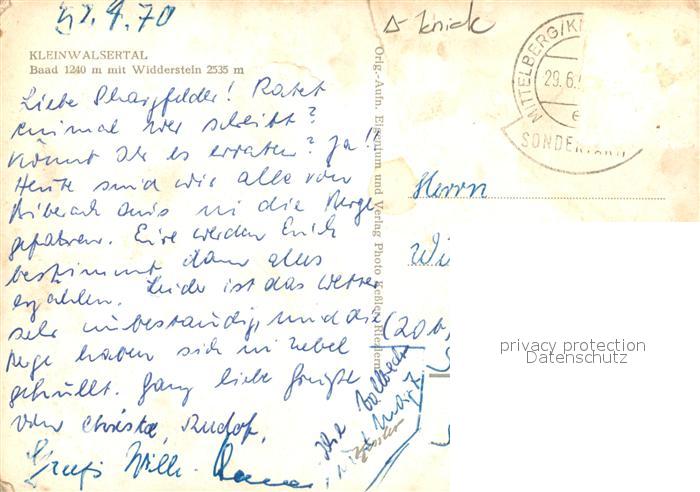 4.70
KLEINWALSERTAL
Baad 1240 m mit Widderstein 2535 m
Liebe Ratet
einmal wer schreibt?
Könnt Ihr es erraten? Ja!
Heute sind wir alle von
Biberach aus in die Berge
gefahren. werden Euch
bestimmt dann alles
erzählen. Leider ist das Wetter
sehr unbeständig, und die
Berge haben sich in Nebel
gehüllt. Ganz liebe Grüße
von Christa, Rudolf,
Willi
Orig.-Aufn. Eigentum und Verlag Photo Keßler, Riezlern
Δ Knick
MITTELBERG/K
29.6.
SONDER
Herrn
Wi
(20b,
privacy protection
Datenschutz